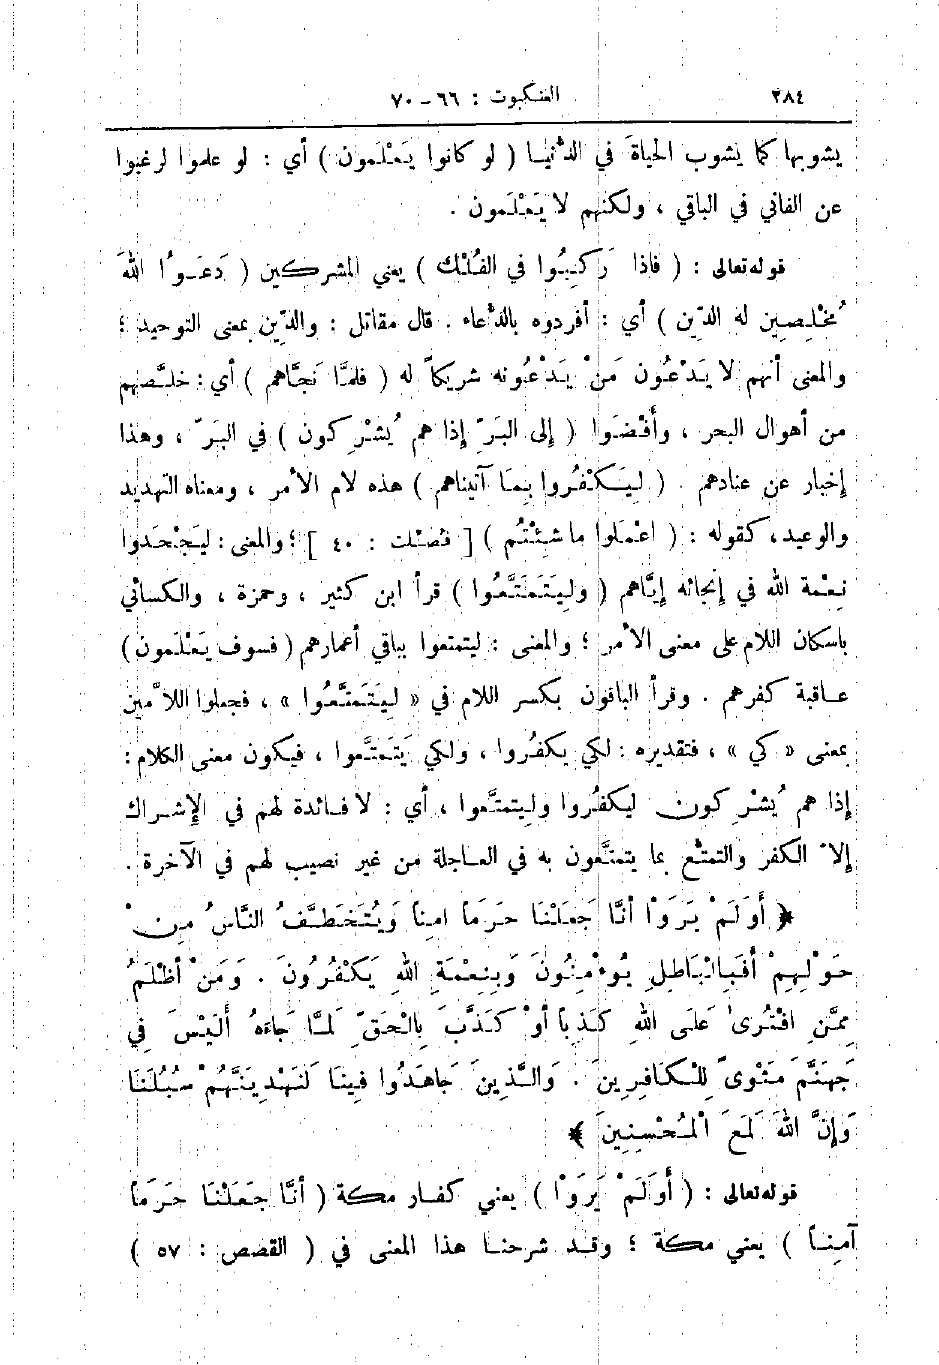 ٢٨٤ العنكبوت : ٦٦ـ٧٠
يشوبها كما يشوب الحياةَ في الدُّنْيا ( لو كانوا يَعْلَمون ) أي : لو علموا لرغبوا
عن الفاني في الباقي ، ولكنهم لا يَعْلَمون .
قوله تعالى : ( فاذا رَكِبُوا في الفُلْك ) يعني المشركين ( دَعَوُا اللهَ
مُخْلِصِين له الدِّين ) أي : أفردوه بالدُّعاء . قال مقاتل : والدِّين بمعنى التوحيد ؛
والمعنى أنهم لا يَدْعُون مَنْ يَدْعُونه شريكاً له ( فلمَّا نَجَّاهم ) أي : خلَّصهم
من أهوال البحر ، وأَفْضَوا ( إِلى البَرِّ إِذا هم يُشْرِكون ) في البَرِّ ، وهذا
إِخبار عن عنادهم . ( لِيَكْفُروا بِمَا آتيناهم ) هذه لام الأمر ، ومعناه التهديد
والوعيد، كقوله : ( اعْمَلوا ما شِئْتُم ) [ فصِّلت : ٤٠ ] ؛ والمعنى : ليَجْحَدوا
نِعْمة الله في إِنجائه إِيَّاهم ( ولِيَتَمَتَّعُوا ) قرأ ابن كثير ، وحمزة ، والكسائي
باسكان اللام على معنى الأمر ؛ والمعنى : ليتمتعوا بباقي أعمارهم ( فسوف يَعْلَمون )
عاقبة كفرهم . وقرأ الباقون بكسر اللام في « لِيَتَمَتَّعُوا » ، فجعلوا اللاَّمين
بمعنى « كي » ، فتقديره : لكي يكفُروا ، ولكي يَتَمتَّعوا ، فيكون معنى الكلام :
إِذا هم يُشْرِكون ليكفُروا ولِيتمتَّعوا ، أي : لا فائدة لهم في الإِشراك
إِلا الكفر والتمتُّع بما يتمتَّعون به في العاجلة من غير نصيب لهم في الآخرة .
﴿ أَوَلَمْ يَرَوْا أنَّا جَعَلْنَا حَرَماً امناً وَيُتَخَطَّفُ النَّاسُ مِنْ
حَوْلِهِمْ أَفَبِالْبَاطِلِ يُؤْمِنُونَ وَبِنِعْمَةِ اللهِ يَكْفُرُونَ . وَمَنْ أظْلَمُ
مِمَّنِ افْتَرى عَلَى اللهِ كَذِباً أوْ كَذَّبَ بِالْحَقِّ لَمَّا جَاءَهُ أَلَيْسَ فِي
جَهَنَّمَ مَثْوىً لِلْكَافِرِينَ . وَالَّذِينَ جَاهَدُوا فِينَا لَنَهْدِيَنَّهُمْ سُبُلَنَا
وَإِنَّ اللهَ لَمَعَ الْمُحْسِنِينَ ﴾
قوله تعالى : ( أَوَلَمْ يَرَوْا ) يعني كفار مكة ( أنَّا جَعَلْنَا حَرَماً
آمِناً ) يعني مكة ؛ وقد شرحنا هذا المعنى في ( القصص : ٥٧ )